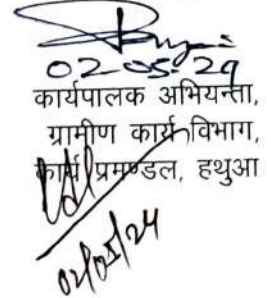 02-05-24
कार्यपालक अभियन्ता,
ग्रामीण कार्य विभाग,
कार्य प्रमण्डल, हथुआ
02/05/24